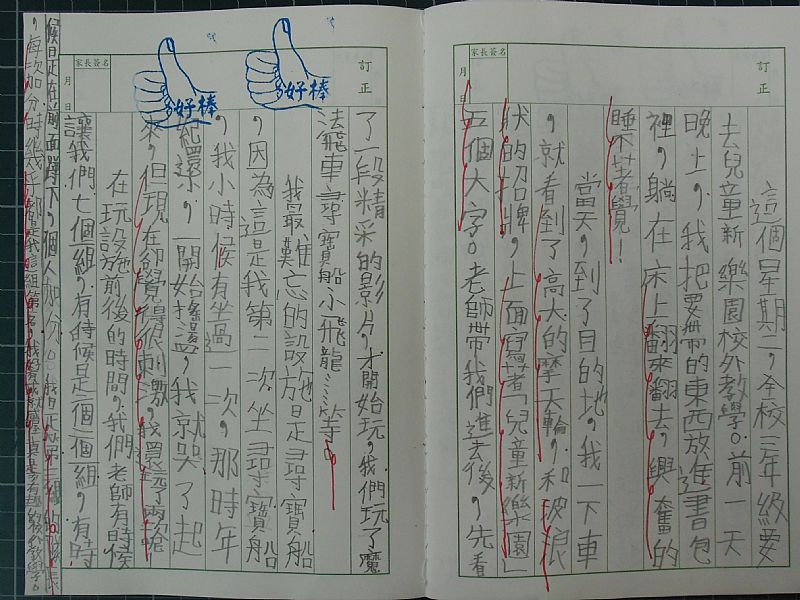 訂正
家長簽名
月 日
這個星期二,全校三年級要
去兒童新樂園校外教學。前一天
晚上,我把要帶的東西放進書包
裡,躺在床上翻來翻去,興奮的
睡不著覺!
當天,到了目的地,我一下車
,就看到了高大的摩天輪,和波浪
狀的招牌,上面寫著「兒童新樂園」
五個大字。老師帶我們進去後,先看
訂正
家長簽名
月 日
好棒
好棒
了一段精采的影片,才開始玩,我們玩了魔
法飛車、尋寶船、小飛龍……等。
我最難忘的設施是尋寶船
,因為這是我第二次坐尋寶船
,我小時候有坐過一次,那時年
紀還小,一開始搖盪,我就哭了起
來,但現在卻覺得很刺激,我還玩了兩次
在玩設施前後的時間,我們老師有時候
讓我們七個組,有時候是一個一個組,有時
候是在前面
,每次加分時幾乎